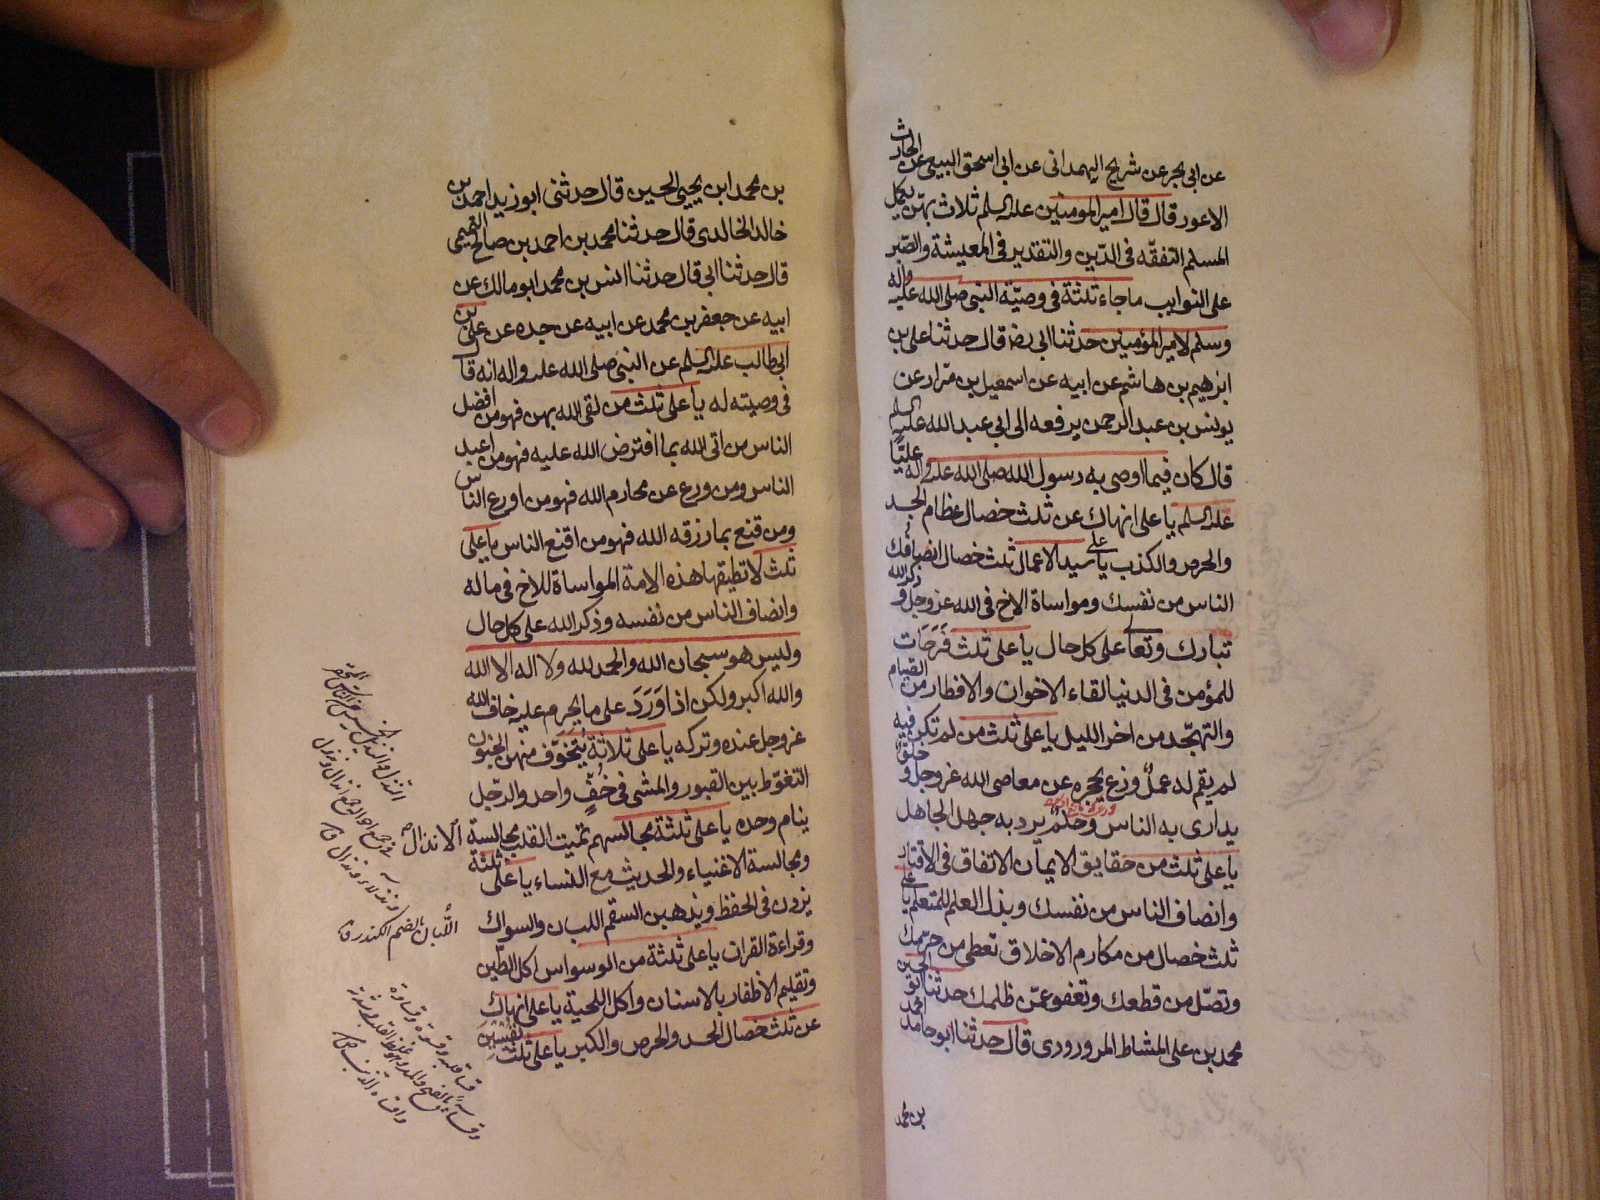 عن ابی بحر عن شریح الهمدانی عن ابی اسحق السبیعی عن الحارث
الاعور قال قال امیر المومنین علیه السلم ثلاث بهن یکمل
المسلم التفقه فی الدّین والتقدیر فی المعیشة والصّبر
علی النوایب ما جاء ثلثة فی وصیّة النبی صلی الله علیه واله
وسلم لامیر المؤمنین حدثنا ابی رضه قال حدثنا علی بن
ابرهیم بن هاشم عن ابیه عن اسمعیل بن مرار عن
یونس بن عبد الرحمن یرفعه الی ابی عبد الله علیه السلم
قال کان فیما اوصی به رسول الله صلی الله علیه واله علیّا
علیه السلم یا علی انهاک عن ثلث خصال عظام الحسد
والحرص والکذب یا علی سید الاعمال ثلث خصال انصافک
الناس من نفسک ومواساة الاخ فی الله عز وجل و ذکر الله
تبارک وتعا علی کل حال یا علی ثلث فَرَحَات
للمؤمن فی الدنیا لقاء الاخوان والافطار من الصیام
والتهجّد من اخر اللیل یا علی ثلث من لم تکن فیه
لم یقم له عملٌ ورع یحجزه عن معاصی الله عز وجل و خلق
یداری به الناس وحلمٌ یرد به جهل الجاهل
یا علی ثلث من حقایق الایمان الانفاق فی الاقتار
وانصاف الناس من نفسک وبذل العلم للمتعلم یا علی
ثلث خصال من مکارم الاخلاق تعطی من حرمک
وتصل من قطعک وتعفو عمّن ظلمک حدثنا ابو الحسین
محمد بن علی المشاط المروروری قال حدثنا ابو حامد احمد
بن محمد
بن محمد ابن یحیی الحسین قال حدثنی ابو زید احمد بن
خالد الخالدی قال حدثنا محمد بن احمد بن صالح التمیمی
قال حدثنا ابی قال حدثنا انس بن محمد ابو مالک عن
ابیه عن جعفر بن محمد عن ابیه عن جده عن علی بن
ابی طالب علیه السلم عن النبی صلی الله علیه واله انه قال
فی وصیته له یا علی ثلث من لقی الله بهن فهو من افضل
الناس من اتی الله بما افترض الله علیه فهو من اعبد
الناس ومن ورع عن محارم الله فهو من اورع الناس
ومن قنع بما رزقه الله فهو من اقنع الناس یا علی
ثلث لا تطیقها هذه الامة المواساة للاخ فی ماله
وانصاف الناس من نفسه وذکر الله علی کل حال
ولیس هو سبحان الله والحمد لله ولا اله الا الله
والله اکبر ولکن اذا وَرَدَ علی ما یحرم علیه خاف الله
عز وجل عنده وترکه یا علی ثلاثة یُتخوّف منهن الجنون
التغوّط بین القبور والمشی فی خُفٍّ واحد والرجل
ینام وحده یا علی ثلثة مجالستهم تمیت القلب مجالسة الانذال
ومجالسة الاغنیاء والحدیث مع النساء یا علی ثلثة
یزدن فی الحفظ ویذهبن السقم اللبان والسواک
وقراءة القران یا علی ثلثة من الوسواس اکل الطّین
وتقلیم الاظفار بالاسنان واکل اللحیة یا علی انهاک
عن ثلث خصال الحسد والحرص والکبر یا علی ثلث یقسین
اللُّبان بالضم الکندر ق